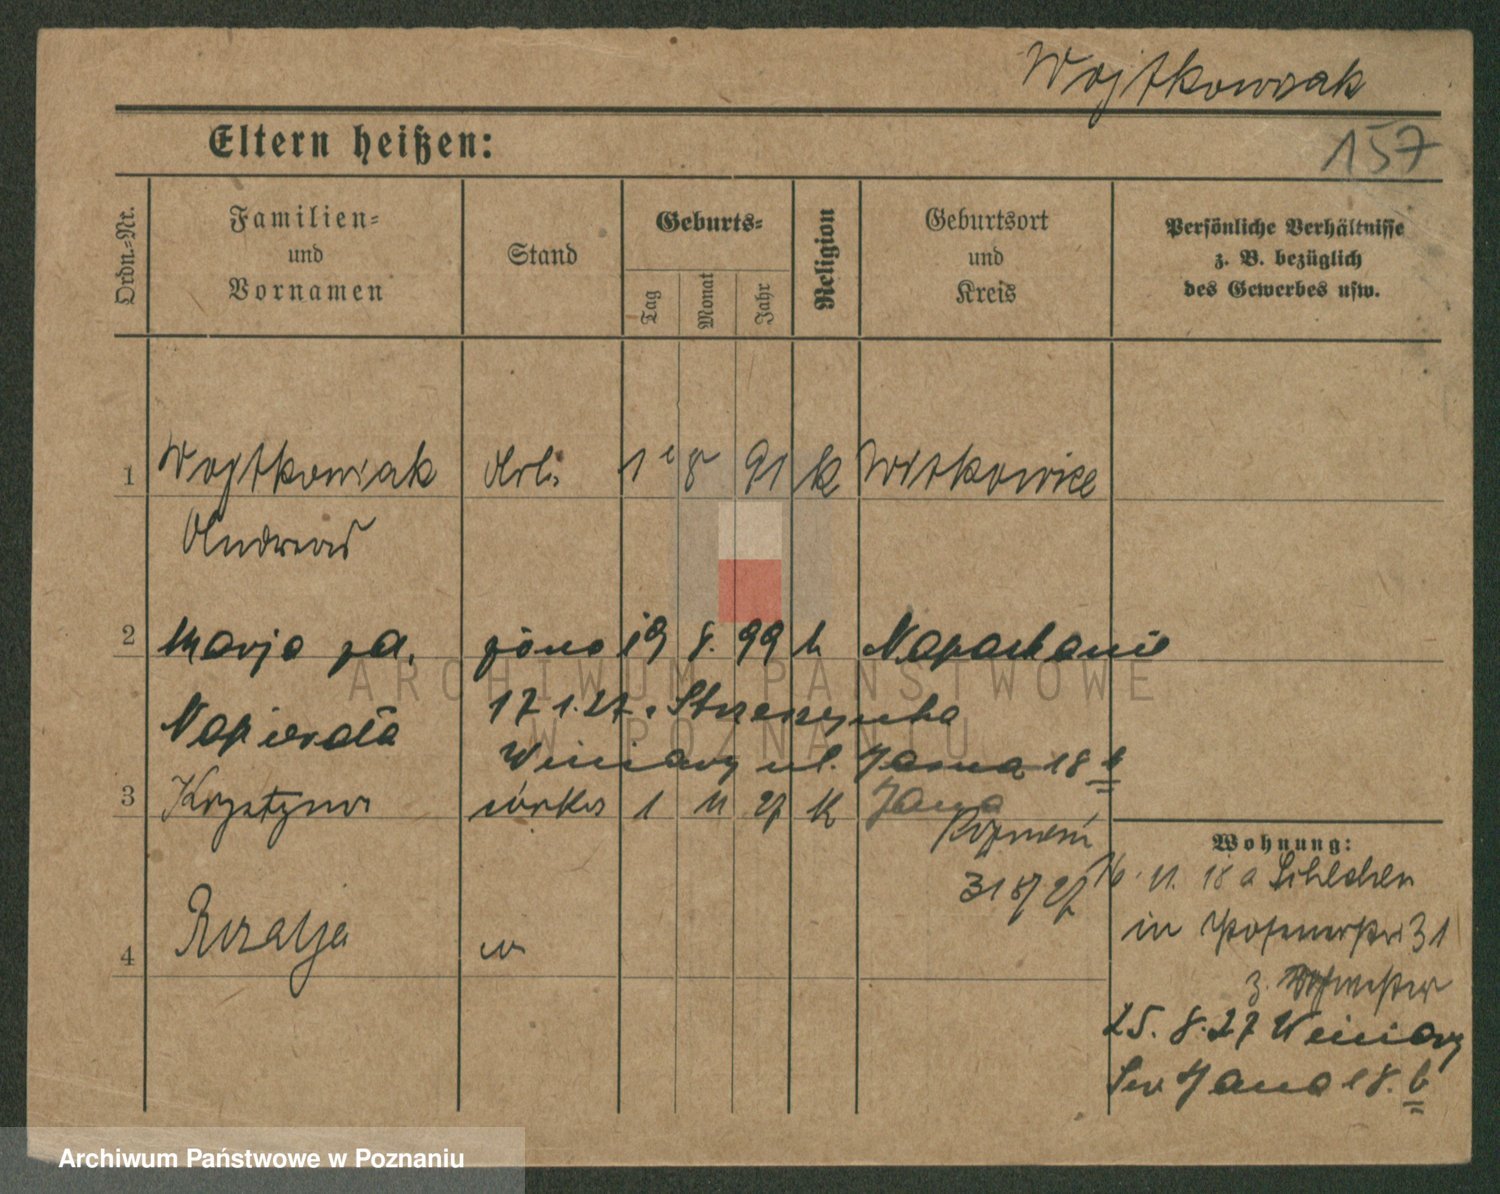 Wojtkowiak
157
Eltern heißen:
Ordn.-Nr.
Familien- und Vornamen
Stand
Geburts-
Tag
Monat
Jahr
Religion
Geburtsort und Kreis
Persönliche Verhältnisse z. B. bezüglich des Gewerbes usw.
1 Wojtkowiak Arb. 1 8 91 k Witkowice
Andreas
2 Marja zd. żona 19 8. 99 k Napachanie
Napierała 17 1. 27. Strzeszynka
Winiary ul. Jasna 18 b
3 Krystyna córka 1 11 27 k Jasna
Poznań
31 8/27
Wohnung:
16. 11. 18 a Schlehen
in Posenerstr. 31
4 Rozalja
z.
25. 8. 27 Winiary
Jasna 18. b
ARCHIWUM PAŃSTWOWE
W POZNANIU
Archiwum Państwowe w Poznaniu